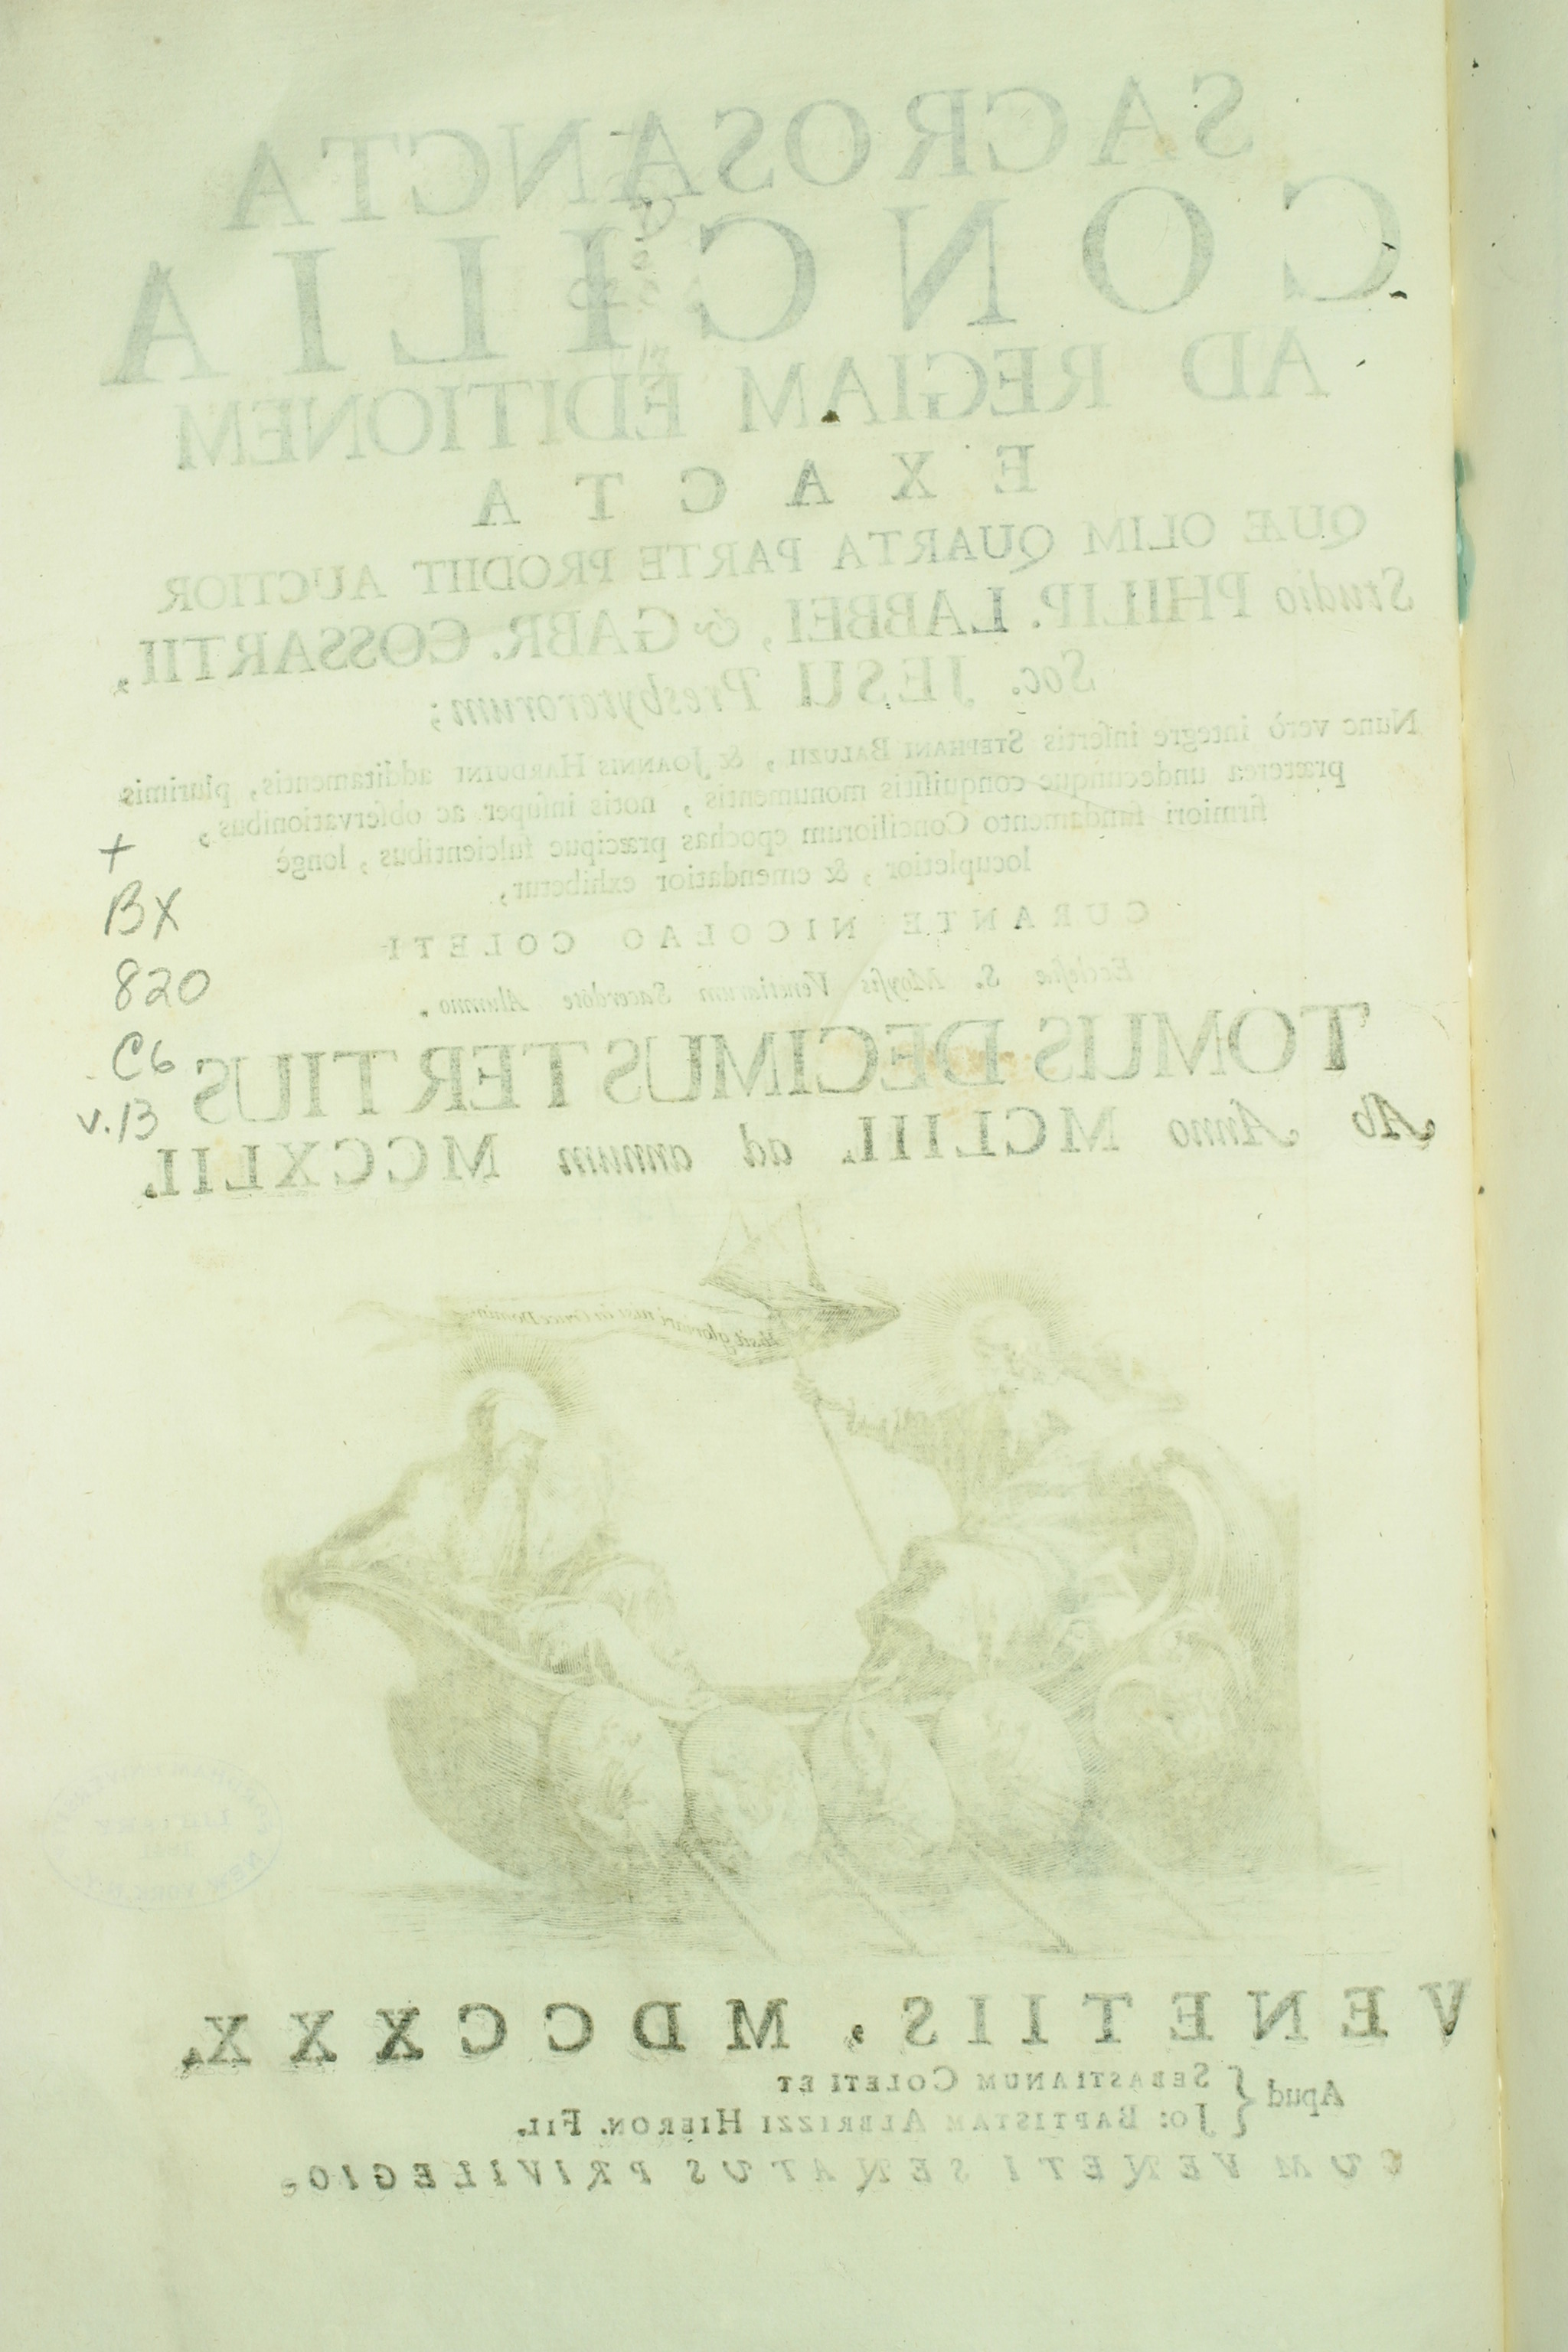 SACROSANCTA
CONCILIA
AD REGIAM EDITIONEM
EXACTA
QUÆ OLIM QUARTA PARTE PRODIIT AUCTIOR
Studio PHILIP. LABBEI, & GABR. COSSARTII,
Soc. JESU Presbyterorum;
Nunc verò integre insertis STEPHANI BALUZII, & JOANNIS HARDUINI additamentis, plurimis
præterea undecunque conquisitis monumentis, notis insuper ac observationibus,
firmiori fundamento Conciliorum epochas præcipue fulcientibus, longè
locupletior, & emendatior exhibetur,
CURANTE NICOLAO COLETI
Ecclesiæ S. Moysis Venetiarum Sacerdote Alumno.
TOMUS DECIMUS TERTIUS
Ab Anno MCLIII. ad annum MCCXLII.
+
BX
820
C6
v.13
Absit gloriari nisi in Cruce Domini
VENETIIS, MDCCXXX.
Apud { SEBASTIANUM COLETI ET
JO: BAPTISTAM ALBRIZZI HIERON. FIL.
CUM VENETI SENATUS PRIVILEGIO.